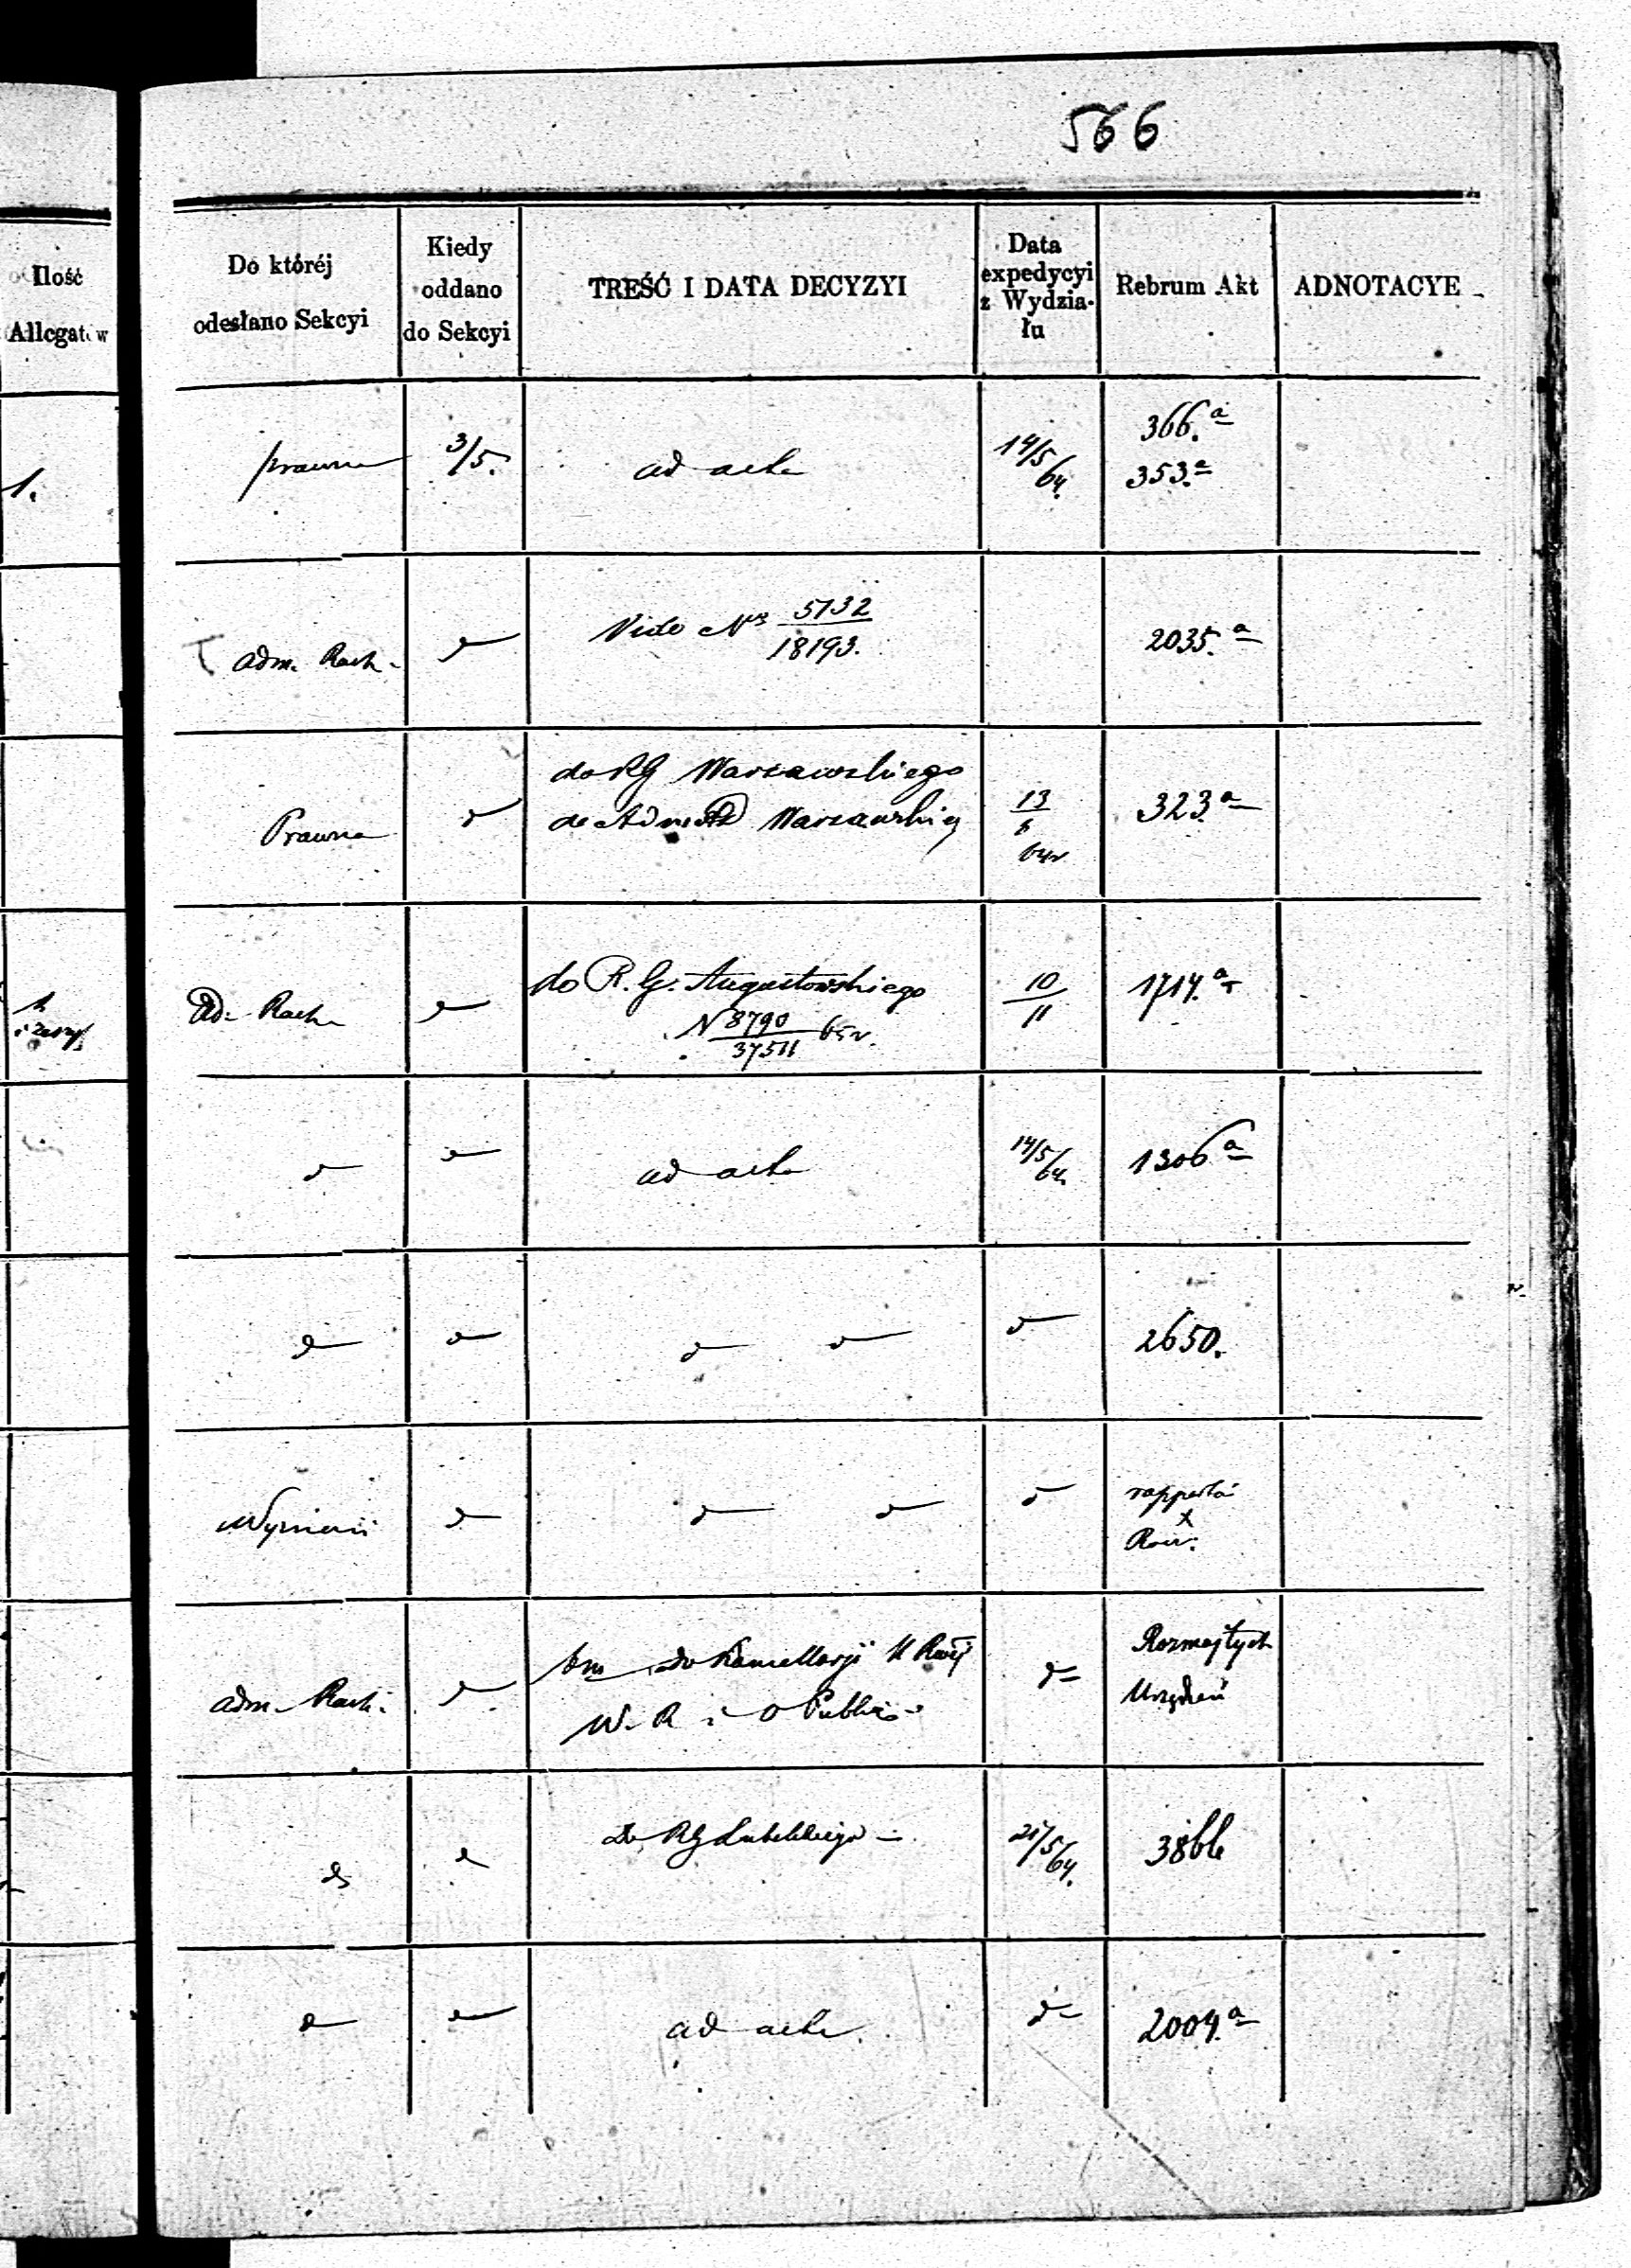 566
Ilość
Allegatów
Do któréj
odesłano Sekcyi
Kiedy
oddano
do Sekcyi
TREŚĆ I DATA DECYZYI
Data
expedycyi
z Wydzia-
łu
Rebrum Akt
ADNOTACYE
1.
prawna
3/5.
ad acta
14/5 64.
366.a
353.a
adm. Rach.
Vide Nr 5732
18193.
2035.a
Prawna
do RG Warszawskiego
Warszawskiej
13
6
64r
323a
1
Ad. Rach.
do R. G. Augustowskiego
N 8790
37511 65r.
10
11
1714.a
ad acta
14/5 64.
1306a
2650.
rapporta
adm. Rach.
do Kancellaryi
W. R. i O Public.
Rozmajtych
Urządzeń
do RG Lubelskiego
21/5 64.
ad acta.
2004.a